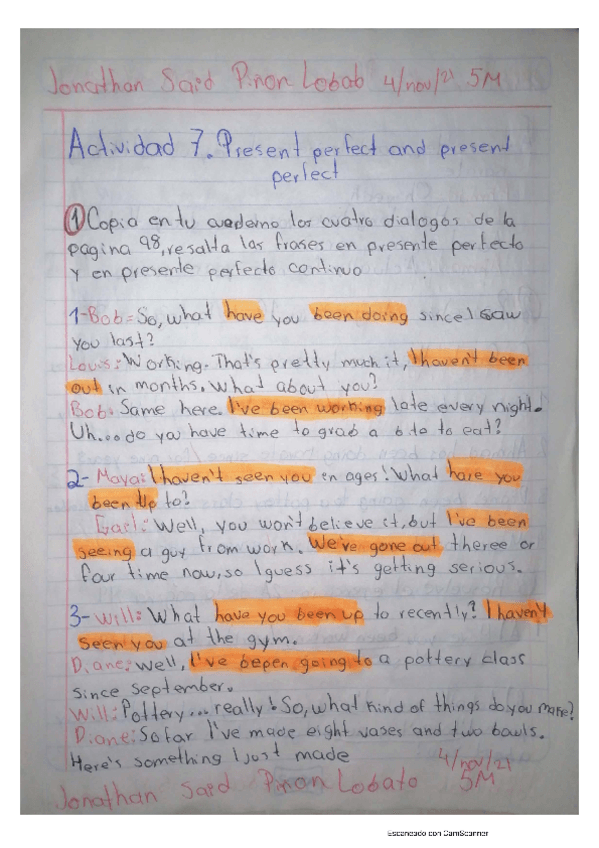 Jonathan Said Pinon Lobato 4/nov/21 5M
Actividad 7. Present perfect and present
perfect
1 Copia en tu cuaderno los cuatro dialogos de la
pagina 98, resalta las frases en presente perfecto
y en presente perfecto continuo
1- Bob: So, what have you been doing since I saw
you last?
Louis: Working. That's pretty much it, I haven't been
out in months. What about you?
Bob: Same here. I've been working late every night.
Uh... do you have time to grab a bite to eat?
2- Maya: I haven't seen you in ages! What have you
been Up to?
Gael: Well, you won't believe it, but I've been
seeing a guy from work. We've gone out theree or
four time now, so I guess it's getting serious.
3- Will: What have you been up to recently? I haven't
seen you at the gym.
Diane: Well, I've bepen going to a pottery class
since september.
Will: Pottery... really! So, what kind of things do you make?
Diane: So far I've made eight vases and two bowls.
Here's something I just made
4/nov/21
Jonathan Said Pinon Lobato 5M
Escaneado con CamScanner